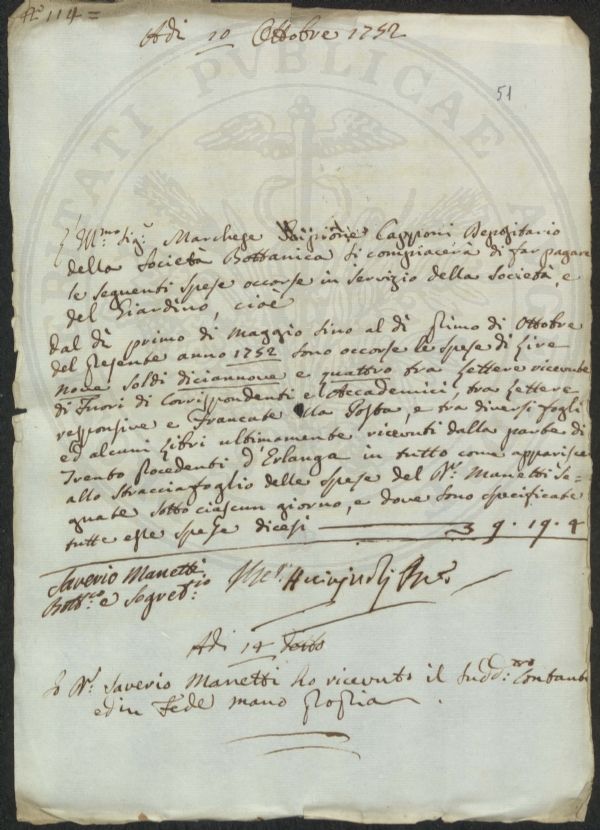 N.° 114 =
Adi 10 Ottobre 1752
51
Ill.mo Sig.r Marchese Scipione Capponi Depositario
della Società Bottanica si compiacerà di far pagare
le seguenti spese occorse in servizio della Società, e
del Giardino, cioè
dal dì primo di Maggio sino al dì primo di Ottobre
del presente anno 1752 sono occorse le spese di Lire
nove soldi diciannove e quattro tra lettere ricevute
di Fuori di Corrispondenti e Accademici, tra lettere
responsive e Francate alla Posta, e tra diversi fogli
ed alcuni libri ultimamente ricevuti dalla parte di
Trento procedenti d'Erlanga in tutto come apparisce
allo stracciafoglio delle spese del D.r Manetti Se=
gnate sotto ciascun giorno, e dove sono specificate
tutte esse spese dicesi 9. 19. 4
Saverio Manetti
Bott.co e Segret.io
Adi 14 detto
Io D.r Saverio Manetti ho ricevuto il sudd.tto Contante
ed in Fede mano propria